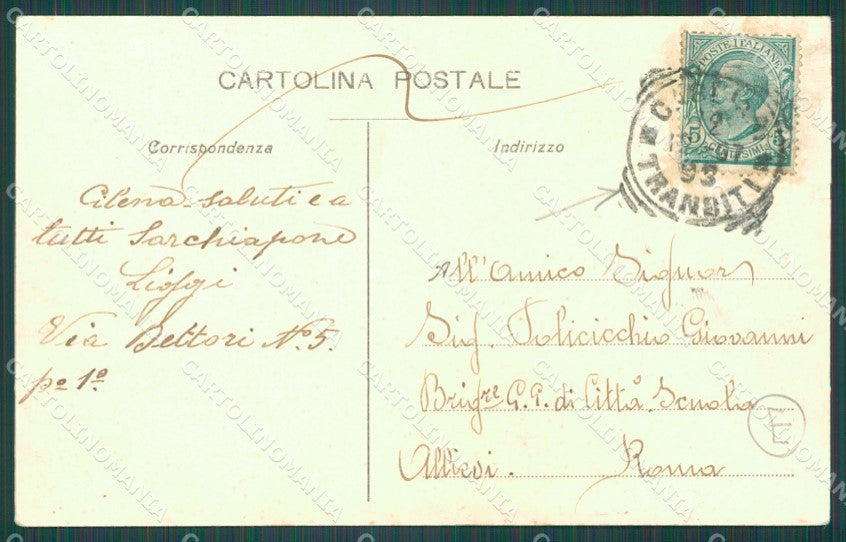 CARTOLINA POSTALE
Corrispondenza
Indirizzo
POSTE ITALIANE
5 CENTESIMI 5
93
TRANSITI
saluti e a
tutti Sarchiapone
Via Bettori Nº 5.
pº 1º
All'Amico Signor
Sig. Policicchio Giovanni
Brigre G. G. di Città Scuola
Allievi. Roma
CARTOLINOMANIA